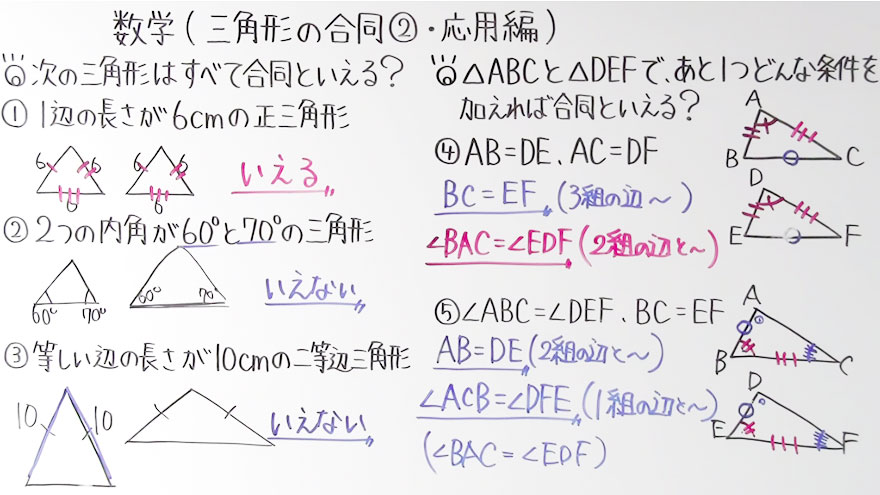 数学(三角形の合同②・応用編)
次の三角形はすべて合同といえる?
① 1辺の長さが6cmの正三角形
6 6 6 6
6 6
いえる
② 2つの内角が60°と70°の三角形
60° 70° 60° 70°
いえない
③ 等しい辺の長さが10cmの二等辺三角形
10 10
いえない
△ABCと△DEFで、あと1つどんな条件を
加えれば合同といえる?
④ AB=DE、AC=DF
BC=EF (3組の辺〜)
∠BAC=∠EDF (2組の辺と〜)
A
B C
D
E F
⑤ ∠ABC=∠DEF、BC=EF
AB=DE (2組の辺と〜)
∠ACB=∠DFE (1組の辺と〜)
(∠BAC=∠EDF)
A
B C
D
E F